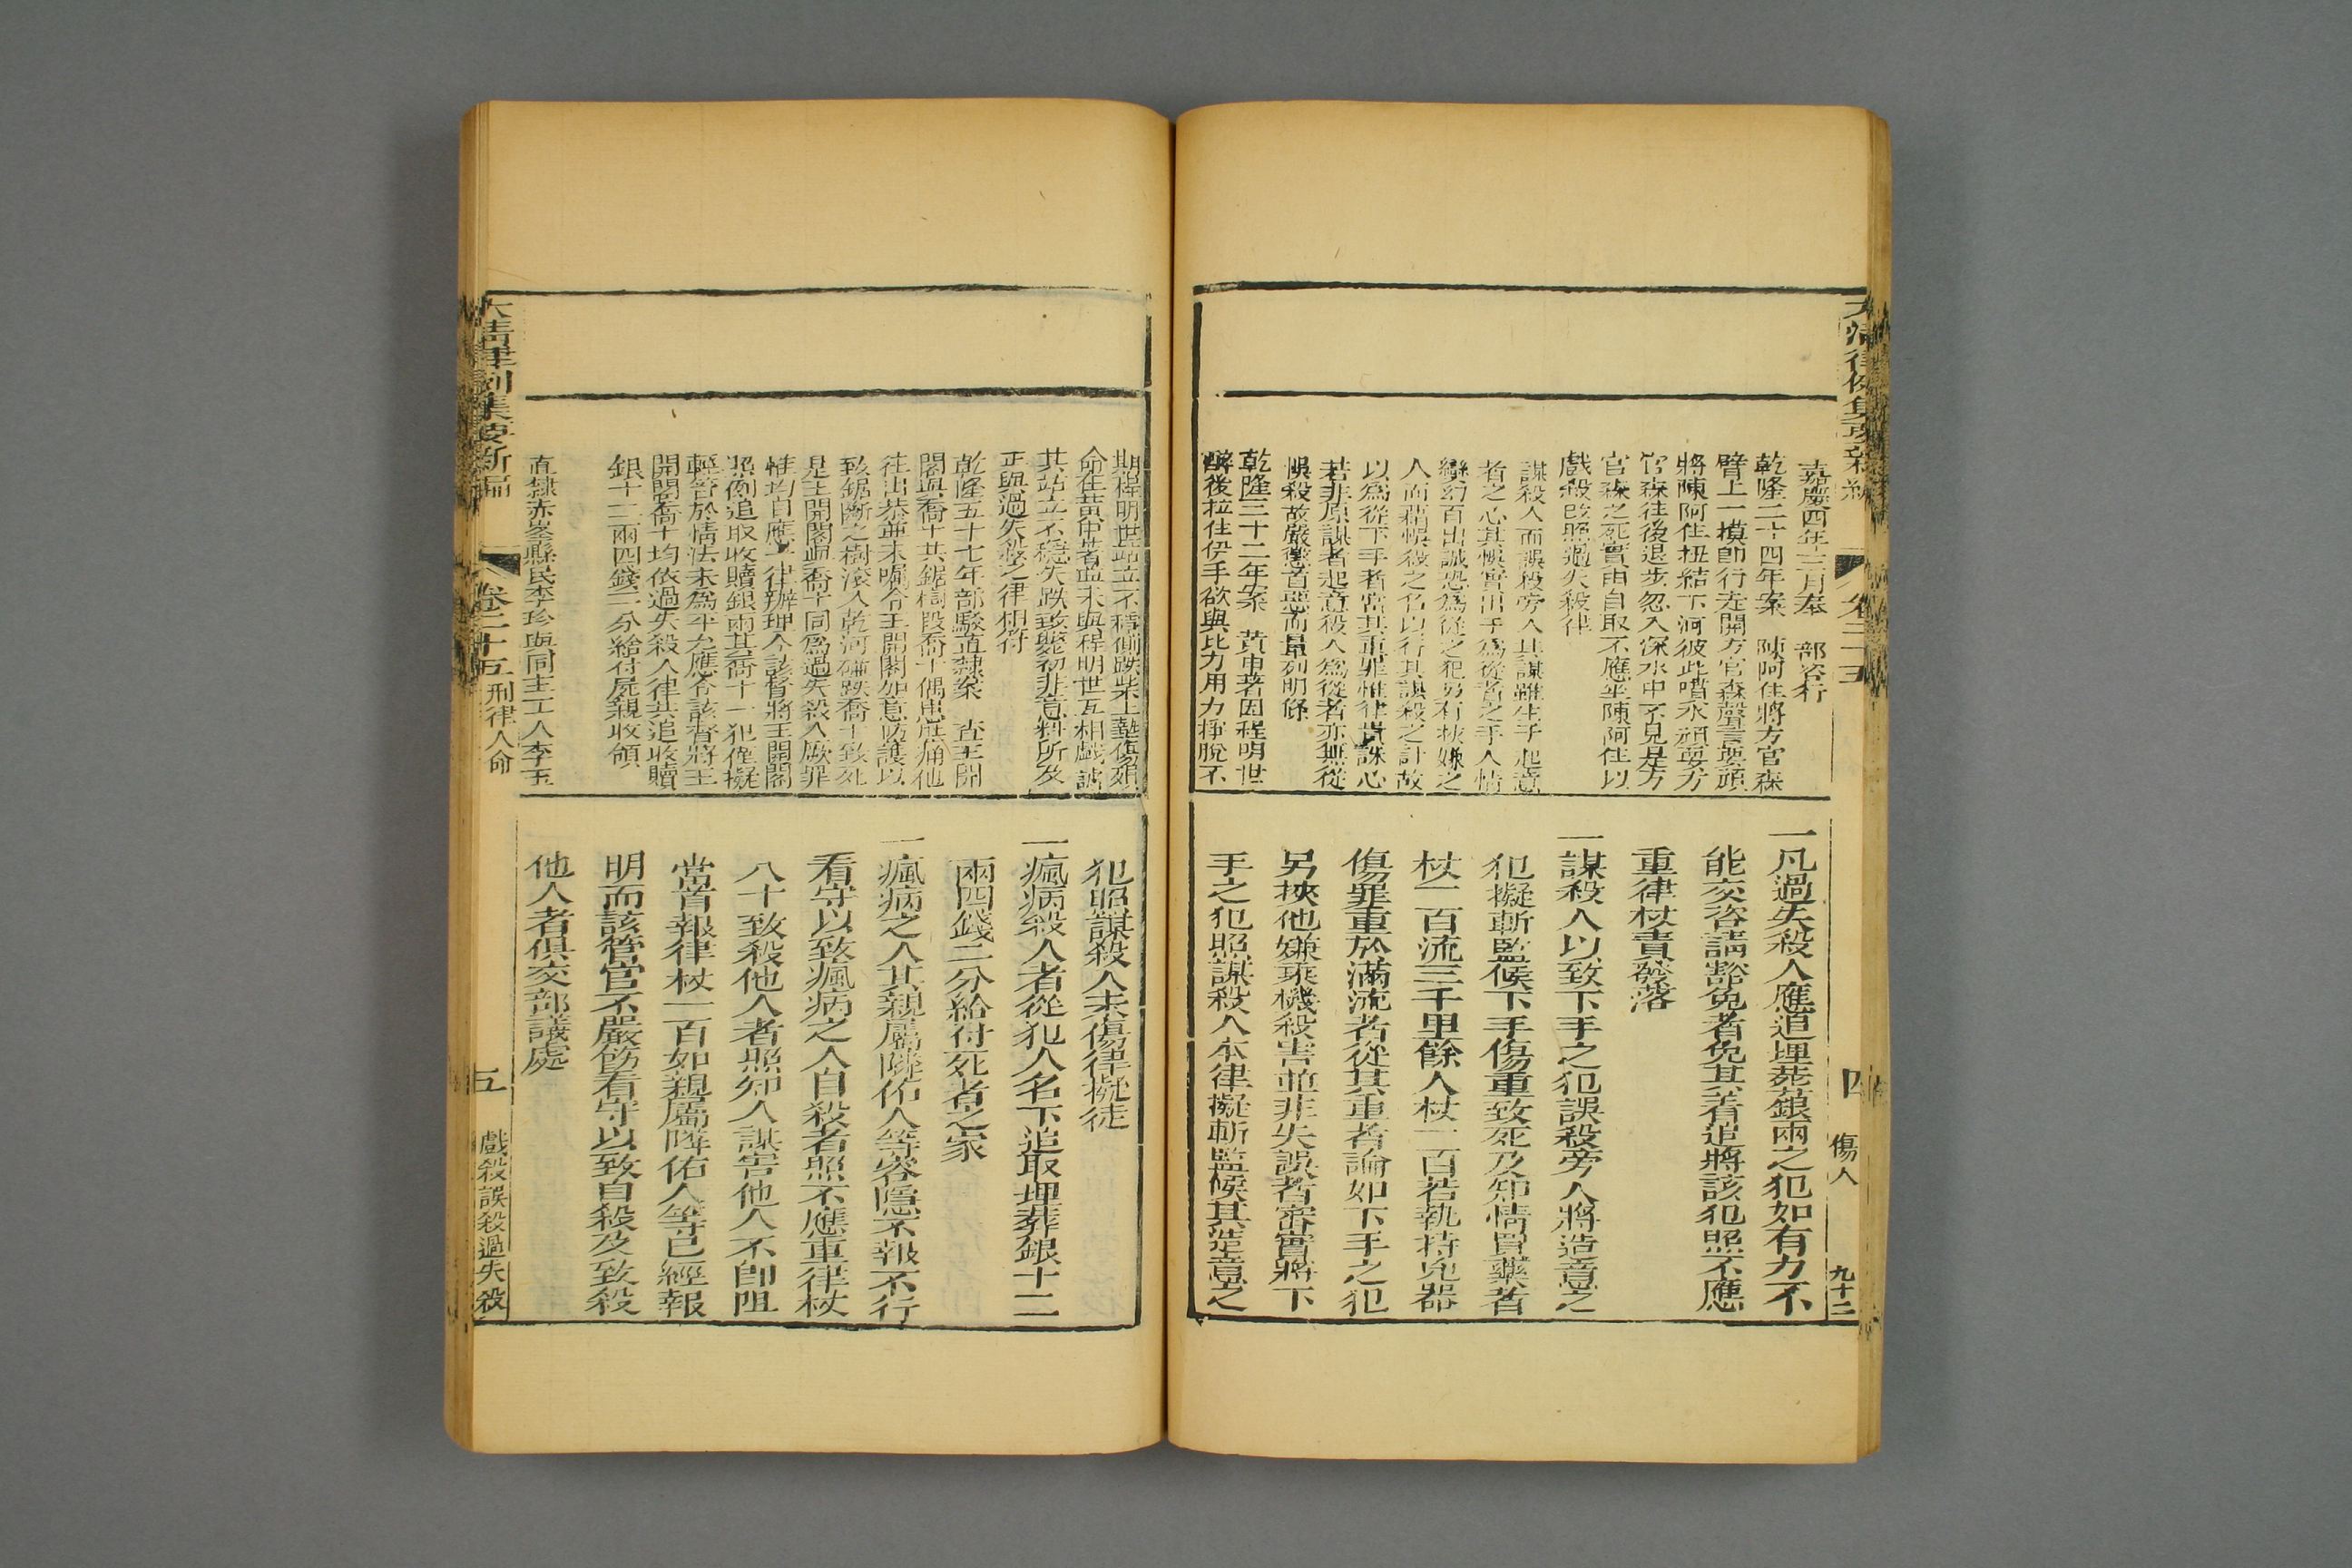 大清律例集要新編
卷二十五
四
傷人
九十二
嘉慶四年十二月奉　部咨行
乾隆二十四年案　陳阿住將方官森
臂上一摸卽行走開方官森聲言要頑
將陳阿住扭結下河彼此嘈水頑耍方
官森往後退步忽入深水中不見是方
官森之死實由自取不應坐陳阿住以
戲殺改照過失殺律
謀殺人而誤殺旁人其謀雖生于起意
者之心其悞實出于爲從者之手人情
變幻百出誠恐爲從之犯另有挾嫌之
人而藉悞殺之名以行其謀殺之計故
以爲從下手者當其重罪惟律貴誅心
若非原謀者起意殺人爲從者亦無從
悞殺故嚴懲首惡而量列明條
乾隆三十二年案　黃申著因程明世
醉後拉住伊手欲與比力用力掙脫不
一凡過失殺人應追埋葬銀兩之犯如有力不
能交咨請豁免者免其着追將該犯照不應
重律杖責發落
一謀殺人以致下手之犯誤殺旁人將造意之
犯擬斬監候下手傷重致死及知情買藥者
杖一百流三千里餘人杖一百若執持兇器
傷罪重於滿流者從其重者論如下手之犯
另挾他嫌乘機殺害並非失誤者審實將下
手之犯照謀殺人本律擬斬監候其造意之
期程明世站立不穩側跌柴上墊傷殞
命在黃申著並未與程明世互相戲謔
其站立不穩失跌致斃初非意料所及
正與過失殺之律相符
乾隆五十七年部駁直隸案　查王開
閣與喬十其鋸樹段喬十偶患肚痛他
往出恭並未囑令王開閣加意防護以
致鋸斷之樹滾入乾河碰跌喬十致死
是王開閣與喬十同爲過失殺人厥罪
惟均自應一律辦理今該督將王開閣
照例追取收贖銀兩其喬十一犯僅擬
輕笞於情法未爲平允應令該督將王
開閣喬十均依過失殺人律共追收贖
銀十二兩四錢二分給付屍親收領
直隸赤峯縣民李珍與同主工人李玉
犯照謀殺人未傷律擬徒
一瘋病殺人者從犯人名下追取埋葬銀十二
兩四錢二分給付死者之家
一瘋病之人其親屬隣佑人等容隱不報不行
看守以致瘋病之人自殺者照不應重律杖
八十致殺他人者照知人謀害他人不卽阻
當首報律杖一百如親屬隣佑人等已經報
明而該管官不嚴飭看守以致自殺及致殺
他人者俱交部議處
大清律例集要新編
卷二十五
刑律人命
五
戲殺誤殺過失殺